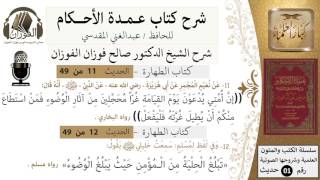 شرح كتاب عمدة الأحكام
للحافظ / عبدالغني المقدسي
شرح الشيخ الدكتور صالح فوزان الفوزان
كتاب الطهارة - الحديث 11 من 49
11- عَنْ نُعَيْمٍ الْمُجْمِرِ عَنْ أَبِي هُرَيْرَةَ - رضي الله عنه - عَنْ النَّبِيِّ ﷺ أَنَّهُ قَالَ:
((إنَّ أُمَّتِي يُدْعَوْنَ يَوْمَ الْقِيَامَةِ غُرَّاً مُحَجَّلِينَ مِنْ آثَارِ الْوُضُوءِ فَمَنْ اسْتَطَاعَ
مِنْكُمْ أَنْ يُطِيلَ غُرَّتَهُ فَلْيَفْعَلْ)) رواه البخاري .
كتاب الطهارة - الحديث 12 من 49
12- وَفِي لَفْظٍ لِمُسْلِمٍ: سَمِعْتُ خَلِيلِي ﷺ يَقُولُ:
«تَبْلُغُ الْحِلْيَةُ مِنَ الْمُؤْمِنِ حَيْثُ يَبْلُغُ الْوُضُوءُ» رواه مسلم .
الفوزان
سلسلة الكتب والمتون
العلمية وشروحها الصوتية
رقم 01 حديث